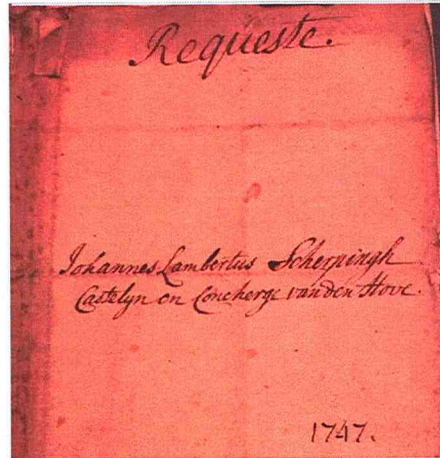 Requeste.
Johannes Lambertus Scherpingh
Castelyn en Concherge van den Hove.
1747.